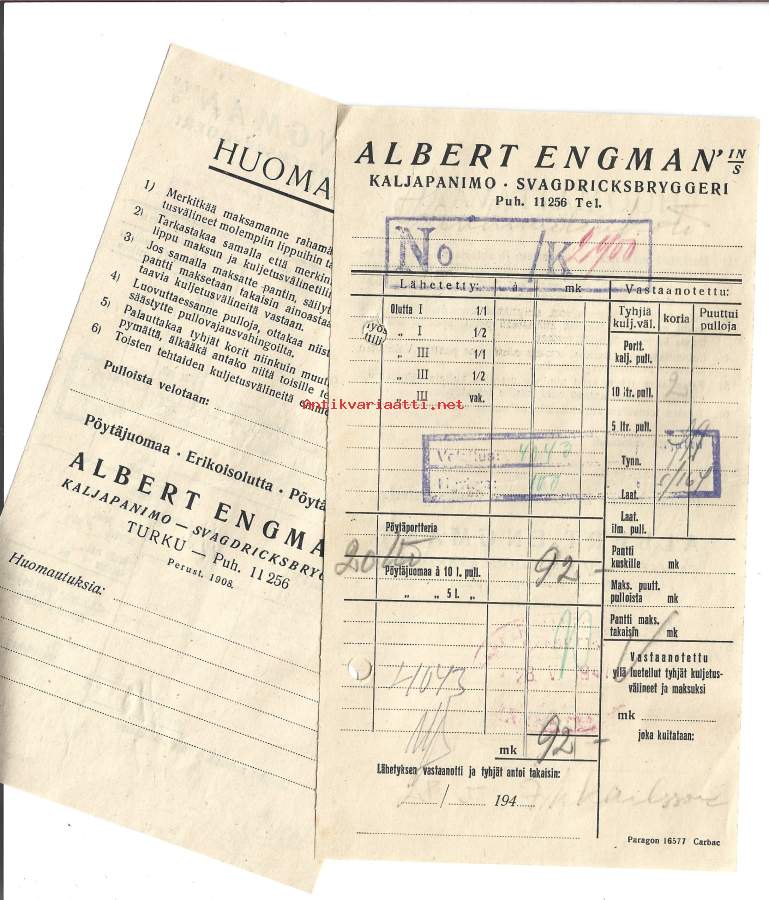 HUOMA
1) Merkitkää maksamanne rahamä
tusvälineet molempiin lippuihin ta
2) Tarkastakaa samalla että merkin
lippu maksun ja kuljetusvälinetilin
3) Jos samalla maksatte pantin, säilyt
pantti maksetaan takaisin ainoasta
taavia kuljetusvälineitä vastaan.
4) Luovuttaessanne pulloja, ottakaa niist
säästytte pullovajausvahingoilta.
5) Palauttakaa tyhjät korit niinkuin muut
pymättä, älkääkä antako niitä toisille te
6) Toisten tehtaiden kuljetusvälineitä
Pulloista velotaan:
Pöytäjuomaa · Erikoisolutta · Pöytä
ALBERT ENGMA
KALJAPANIMO — SVAGDRICKSBRYG
TURKU — Puh. 11 256
Perust. 1908.
Huomautuksia:
ALBERT ENGMAN' IN/S
KALJAPANIMO · SVAGDRICKSBRYGGERI
Puh. 11 256 Tel.
No /K 21400
Lähetetty: à mk Vastaanotettu:
Tyhjiä kulj.väl. koria Puuttui pulloja
Olutta I 1/1
„ I 1/2
„ III 1/1
„ III 1/2
„ III vak.
Portt. kalj. pull.
10 ltr. pull. 2
5 ltr. pull.
Tynn.
Laat.
Laat. ilm. pull.
antikvariaatti.net
Veloitus: 4043
100
Pöytäportteria
Pöytäjuomaa à 10 l. pull. 92 -
„ „ 5 l. „
Pantti kuskille mk
Maks. puutt. pulloista mk
Pantti maks. takaisin mk
4043
Vastaanotettu
yllä luetellut tyhjät kuljetus-
välineet ja maksuksi
mk
joka kuitataan:
mk 92 -
Lähetyksen vastaanotti ja tyhjät antoi takaisin:
/ 194
Paragon 16577 Carbac